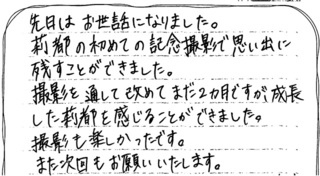 先日は お世話になりました。
莉都の初めての記念撮影で思い出に
残すことができました。
撮影を通して改めてまだ2カ月ですが、成長
した莉都を感じることができました。
撮影も楽しかったです。
また次回もお願いいたします。